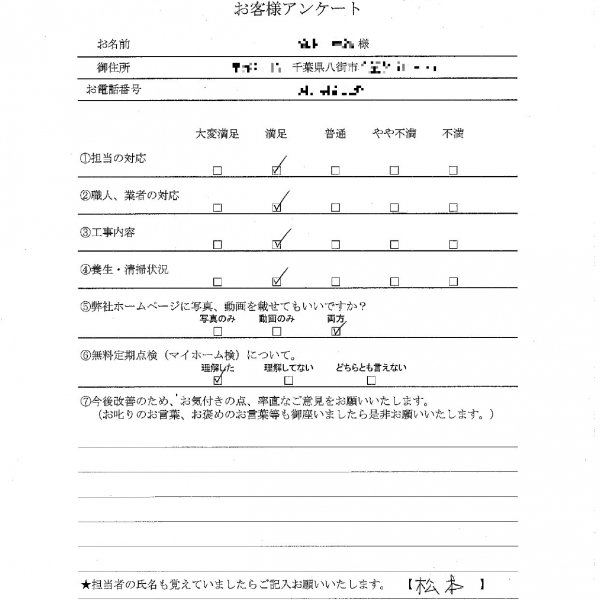 お客様アンケート
お名前 様
御住所 千葉県八街市
お電話番号
大変満足 満足 普通 やや不満 不満
①担当の対応 □ ☑ □ □ □
②職人、業者の対応 □ ☑ □ □ □
③工事内容 □ ☑ □ □ □
④養生・清掃状況 □ ☑ □ □ □
⑤弊社ホームページに写真、動画を載せてもいいですか?
写真のみ 動画のみ 両方
□ □ ☑
⑥無料定期点検(マイホーム検)について。
理解した 理解してない どちらとも言えない
☑ □ □
⑦今後改善のため、お気付きの点、率直なご意見をお願いいたします。
(お叱りのお言葉、お褒めのお言葉等も御座いましたら是非お願いいたします。)
★担当者の氏名も覚えていましたらご記入お願いいたします。 【松本】